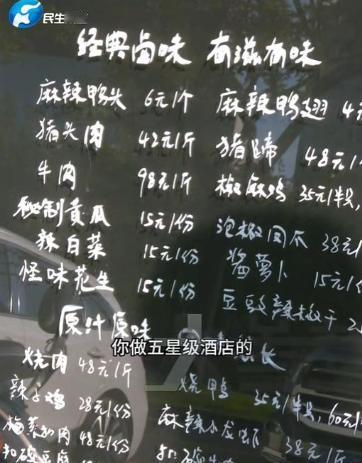 民生
经典卤味 有滋有味
麻辣鸭头 6元1个 麻辣鸭翅 4
猪头肉 42元1斤 猪蹄 48元1
牛肉 98元1斤 椒麻鸡 35元1半只
秘制黄瓜 15元1份 泡椒凤爪 38元1
辣白菜 15元1份 酱萝卜 15元1
怪味花生 15元1份 豆豉辣椒干 2
原汁原味
你做五星级酒店的
烧肉 48元1斤 烧鸭 35元1半只, 60元1
辣子鸡 28元1份 麻辣小龙虾 38元1
梅菜扣肉 48元1份